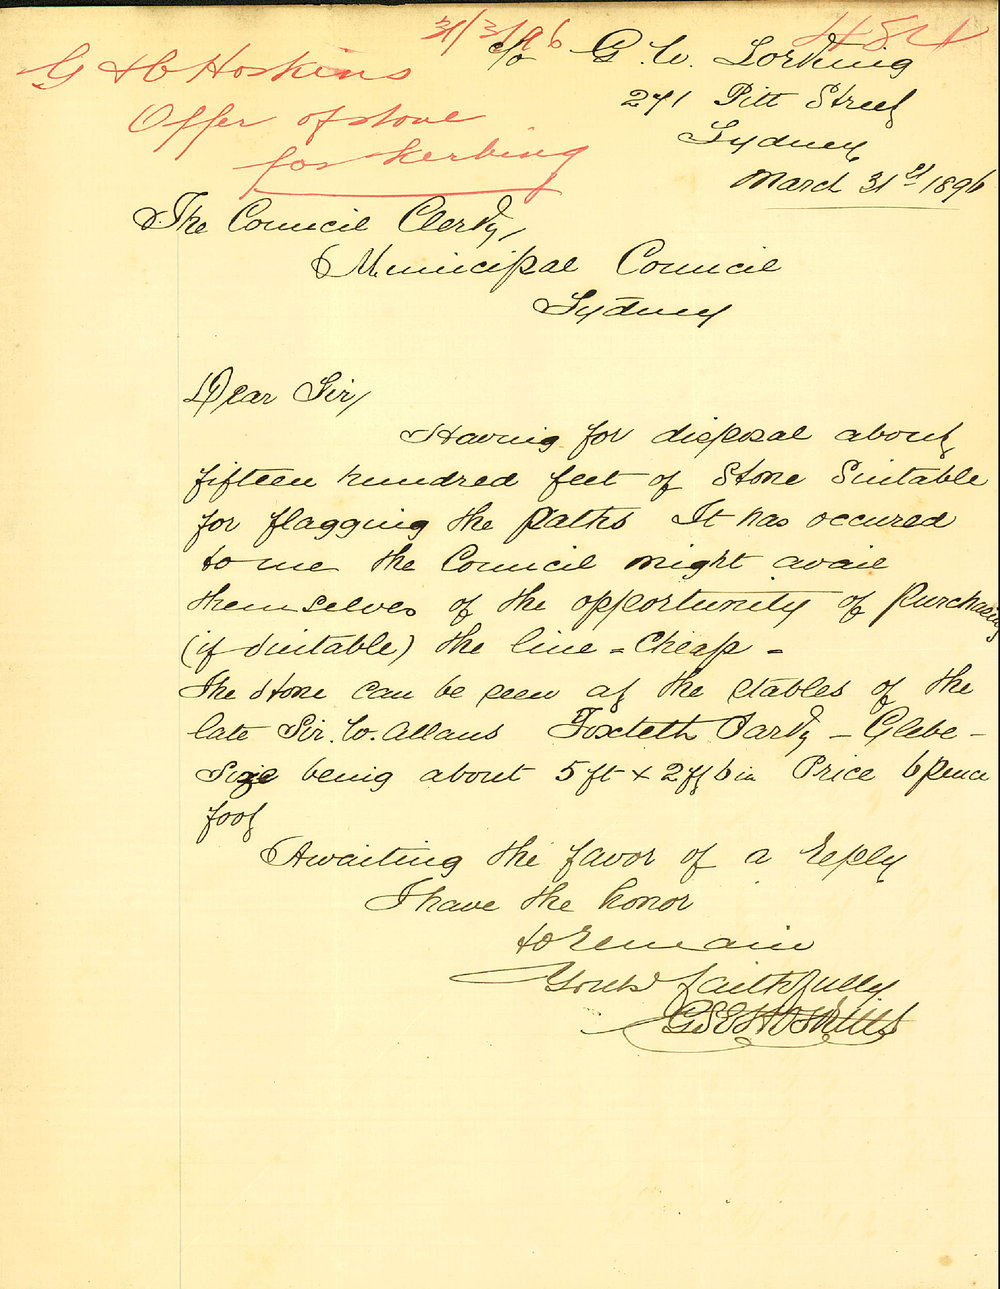 31/3/96
484
G & C Hoskins
Offer of stone
for kerbing
c/o G. W. Lorking
271 Pitt Street
Sydney
March 31st 1896
The Council Clerk,
Municipal Council
Sydney
Dear Sir,
Having for disposal about
fifteen hundred feet of Stone Suitable
for flagging the paths It has occured
to me the Council might avail
themselves of the opportunity of purchasing
(if suitable) the line - Cheap -
The stone can be seen at the stables of the
late Sir. W. Allans Toxteth Park - Glebe -
Size being about 5 ft x 2 ft 6 in Price 6 pence
foot
Awaiting the favor of a reply
I have the honor
to remain
Yours faithfully